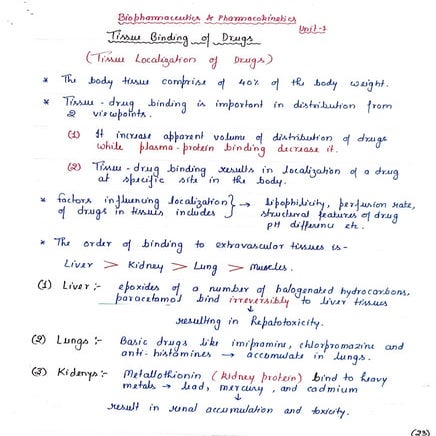 Biopharmaceutics & Pharmacokinetics
Unit-1
Tissue Binding of Drugs
(Tissue Localization of Drugs)
* The body tissue comprise of 40% of the body weight.
* Tissue-drug binding is important in distribution from
2 viewpoints.
(1) It increase apparent volume of distribution of drugs
while plasma-protein binding decrease it.
(2) Tissue-drug binding results in localization of a drug
at specific site in the body.
* Factors influencing localization } → lipophilicity, perfusion rate,
of drugs in tissues includes structural features of drug
pH difference etc.
* The order of binding to extravascular tissues is-
Liver > Kidney > Lung > Muscles.
(1) Liver :- epoxides of a number of halogenated hydrocarbons,
paracetamol bind irreversibly to liver tissues
↓
resulting in Hepatotoxicity.
(2) Lungs :- Basic drugs like imipramine, chlorpromazine and
anti-histamines → accumulate in lungs.
(3) Kidenys :- Metallothionin (kidney protein) bind to heavy
metals → lead, mercury, and cadmium
↓
result in renal accumulation and toxicity.
(23)